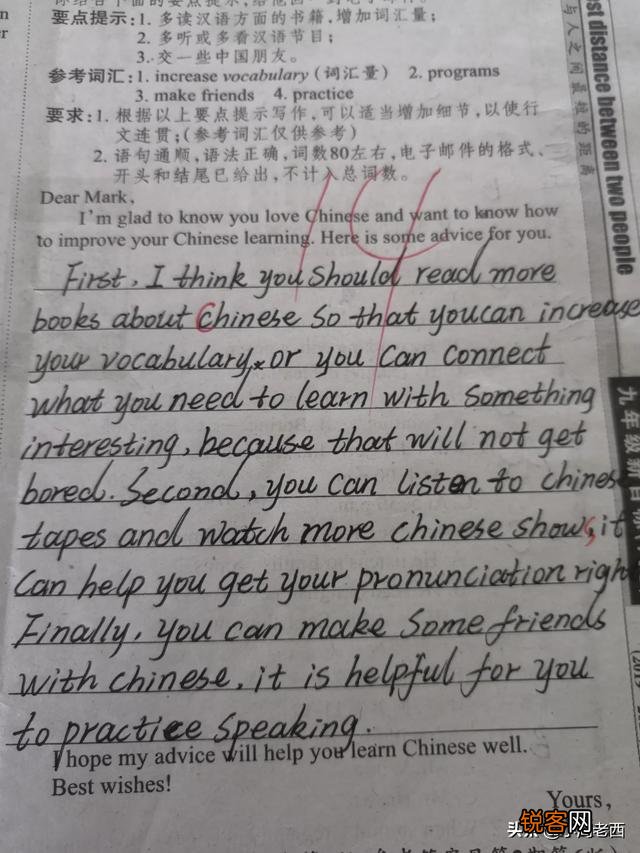 要点提示:1. 多读汉语方面的书籍,增加词汇量;
2. 多听或多看汉语节目;
3. 交一些中国朋友。
参考词汇:1. increase vocabulary (词汇量) 2. programs
3. make friends 4. practice
要求:1. 根据以上要点提示写作,可以适当增加细节,以使行
文连贯;(参考词汇仅供参考)
2. 语句通顺,语法正确,词数80左右,电子邮件的格式、
开头和结尾已给出,不计入总词数。
Dear Mark,
I'm glad to know you love Chinese and want to know how
to improve your Chinese learning. Here is some advice for you.
14
First, I think you should read more
books about Chinese so that you can increase
your vocabulary. or you can connect
what you need to learn with something
interesting, because that will not get
bored. Second, you can listen to chinese
tapes and watch more chinese shows, it
can help you get your pronunciation righ
Finally, you can make some friends
with chinese, it is helpful for you
to practice speaking.
I hope my advice will help you learn Chinese well.
Best wishes!
Yours,
st distance between two people
与人之间最短的距离
九年级
头条
老西
锐客网